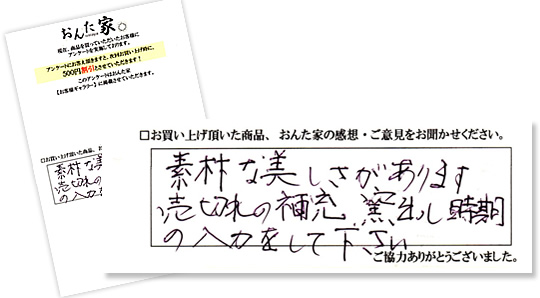 おんた家
現在、商品を買っていただいたお客様に
アンケートを実施しております。
アンケートにお答え頂きますと、次回お買い上げ時に、
500円割引とさせていただきます！
このアンケートはおんた家
【お客様ギャラリー】に掲載させていただきます。
□お買い上げ頂いた商品、お
素朴な美
売切れ
の入力
□お買い上げ頂いた商品、おんた家の感想・ご意見をお聞かせください。
素朴な美しさがあります
売切れの補充、窯出し時期
の入力をして下さい
ご協力ありがとうございました。